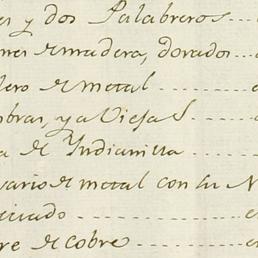 es y dos Palabreros
nes de madera, dorados
lero de metal
obras, ya Viejas
a de Indianilla
vario de metal con su N
de cobre